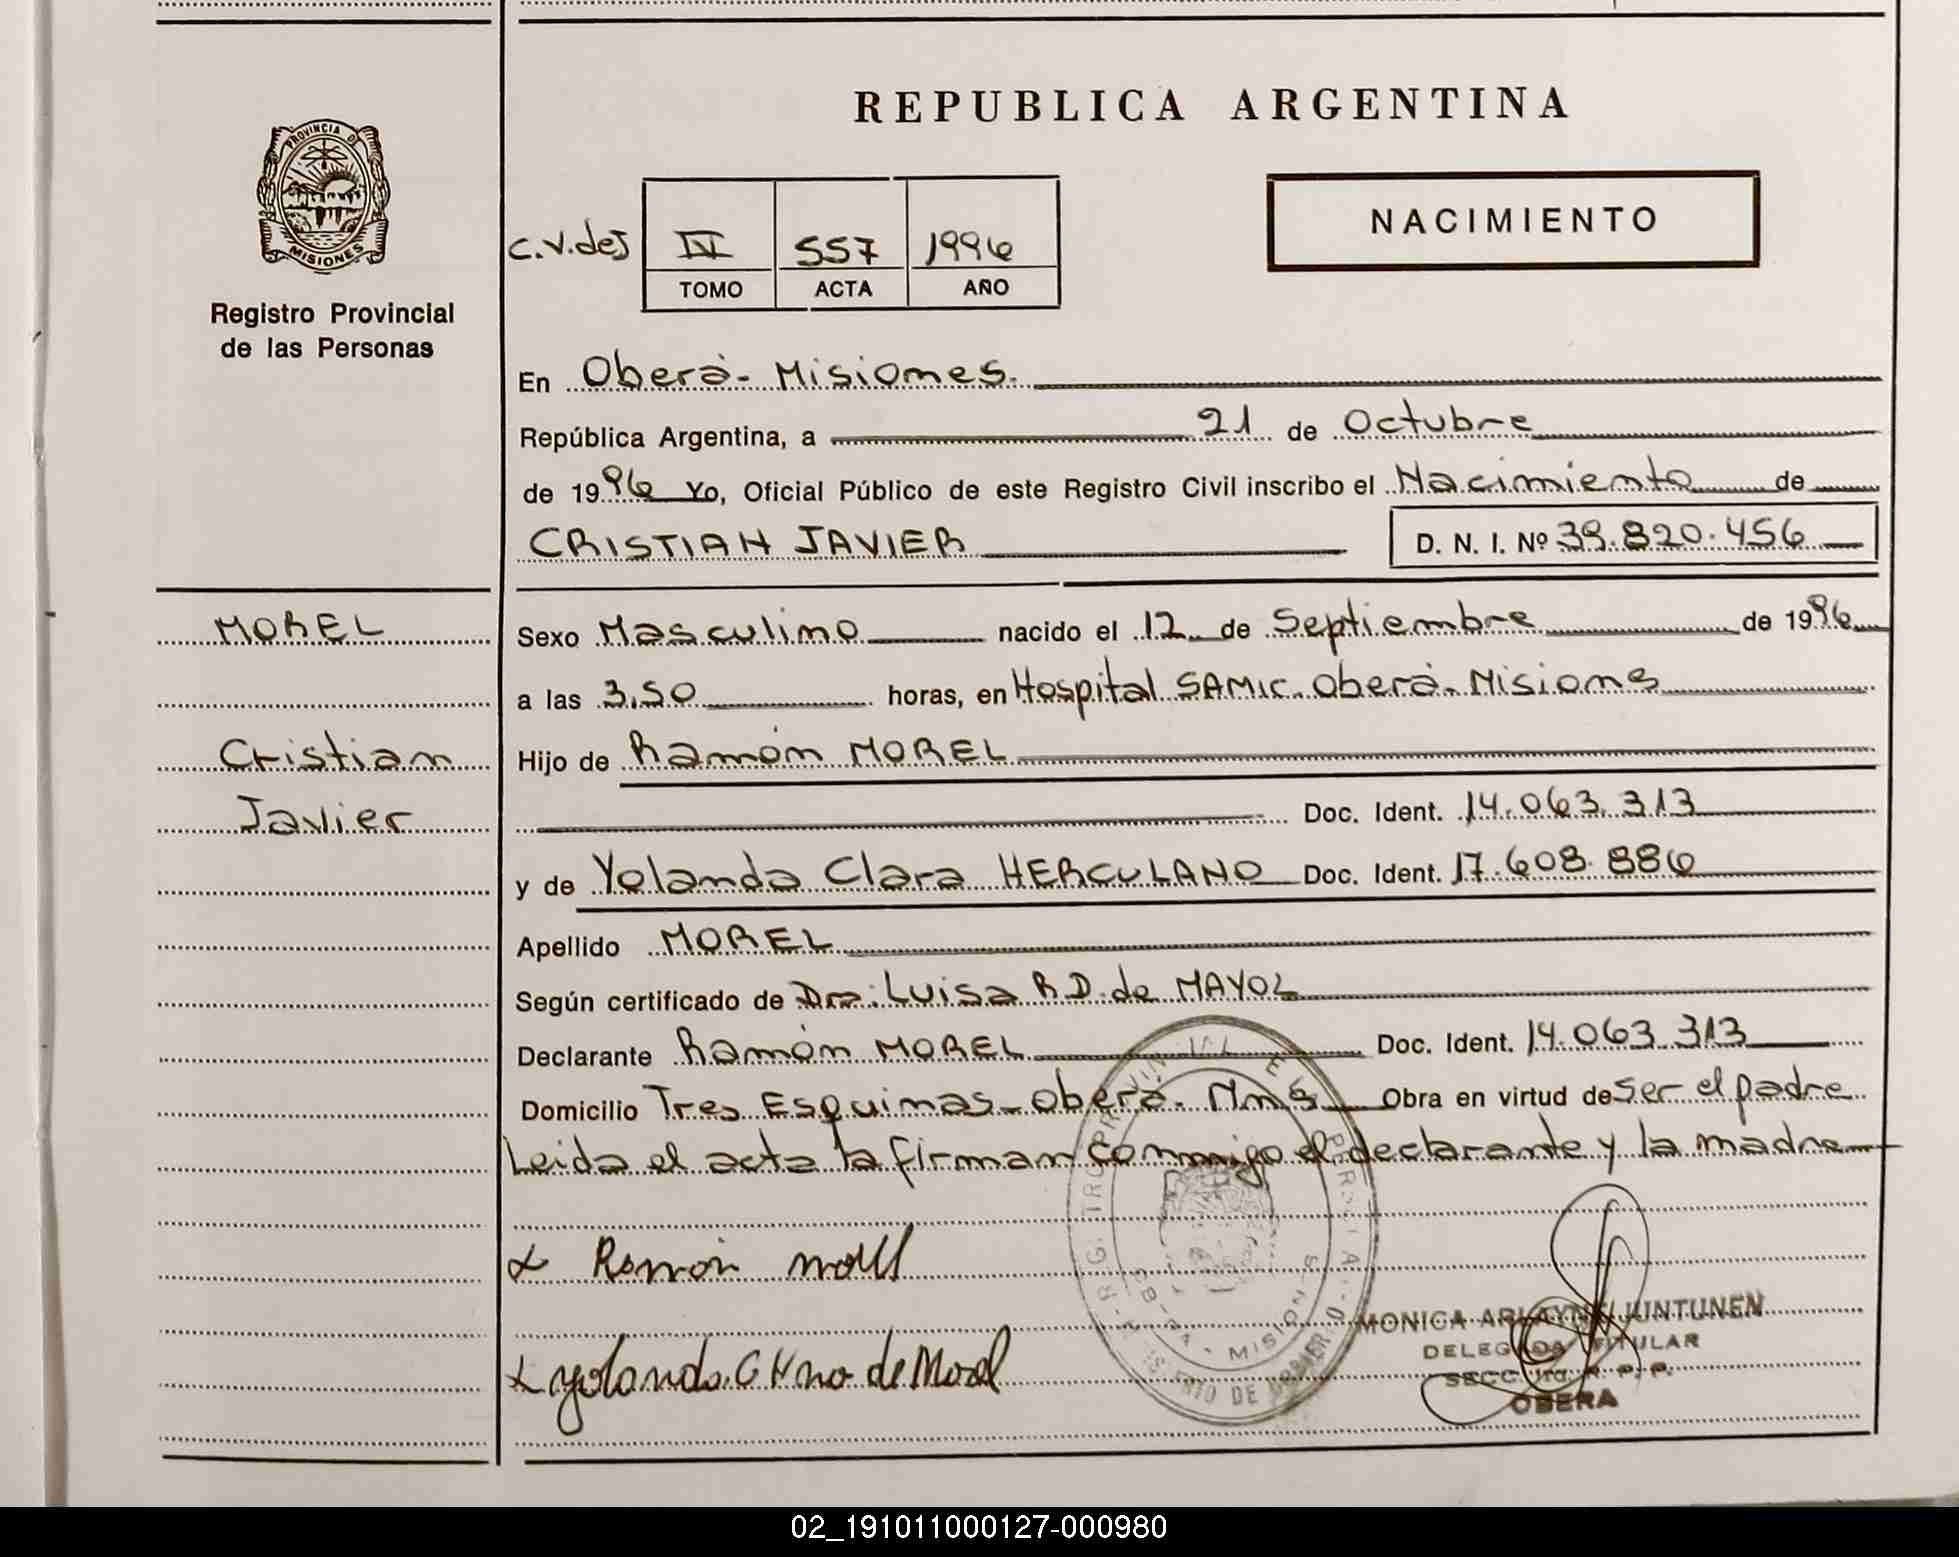 REPUBLICA ARGENTINA
PROVINCIA DE
MISIONES
Registro Provincial
de las Personas
NACIMIENTO
c.v.des IV 557 1996
TOMO ACTA AÑO
En Oberá - Misiones.
República Argentina, a 21 de Octubre
de 1996 Yo, Oficial Público de este Registro Civil inscribo el Nacimiento de
CRISTIAN JAVIER D. N. I. Nº 39.820.456
MOREL
Sexo Masculino nacido el 12 de Septiembre de 1996
a las 3,50 horas, en Hospital SAMIC. Oberá. Misions
Cristian
Hijo de Ramón MOREL
Javier
Doc. Ident. 14.063.313
y de Yolanda Clara HERCULANO Doc. Ident. 17.608.886
Apellido MOREL
Según certificado de Dra. Luisa R.D. de MAYOL
Declarante Ramón MOREL Doc. Ident. 14.063.313
Domicilio Tres Esquinas - Oberá - Mnes Obra en virtud de ser el padre
Leida el acta la firman conmigo el declarante y la madre
x Ramón
x Yolanda de Morel
MISIONES
MONICA ARLAYNE JUNTUNEN
DELEGADA TITULAR
SECC. 1ra. R. P. P.
OBERA
02_191011000127-000980